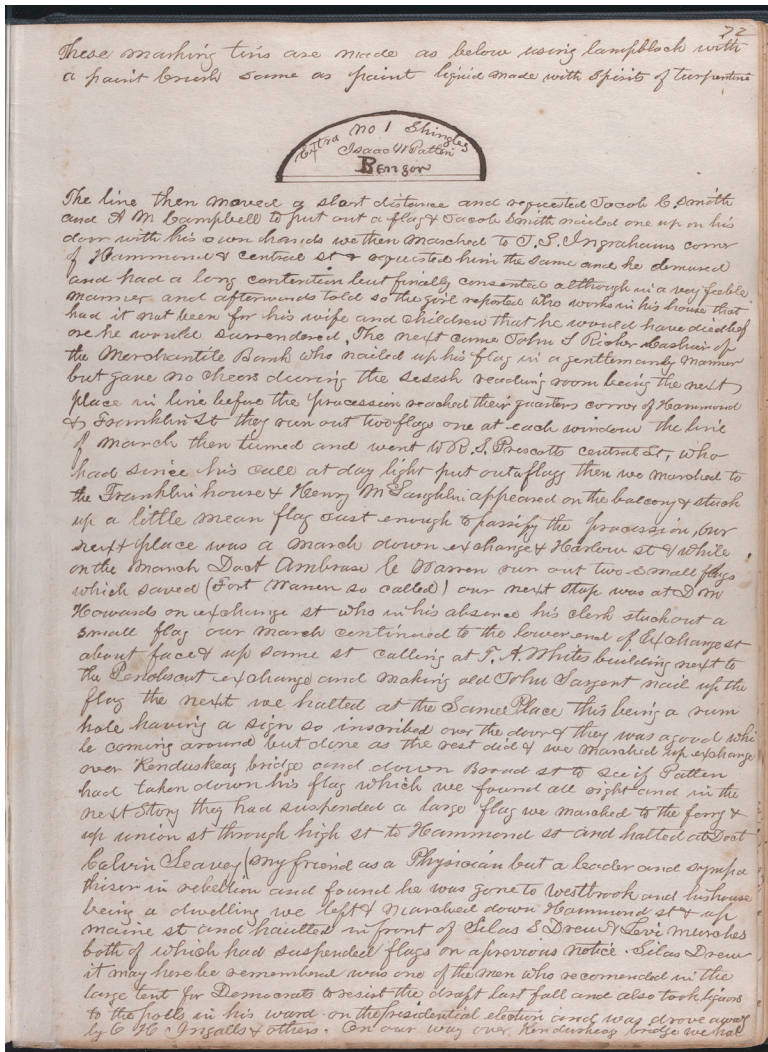 72
These marking tins are made as below using lampblack with
a paint brush same as paint liquid made with Spirits of turpentine
Extra No 1 Shingles
Isaac W Patten
Bangor
The line then moved a short distance and requested Jacob C. Smith
and A M Campbell to put out a flag & Jacob Smith nailed one up on his
door with his own hands we then marched to J. G. Ingrahams corner
of Hammond & central st & requested him the same and he demured
and had a long contention but finally consented although in a very feeble
manner and afterwards told so the girl reported who works in his house that
had it not been for his wife and children that he would have died bef
ore he would surrendered. The next came John S Ricker Cashier of
the Merchantile Bank who nailed up his flag in a gentlemanly manner
but gave no cheers during the sesesh reading room being the next
place in line before the procession reached their quarters corner of Hammond
& Franklin St they run out two flags one at each window the line
of march then turned and went to R. S. Prescotts central St, who
had since his call at day light put out a flagg then we marched to
the Franklin house & Henry McLaughlin appeared on the balcony & stuck
up a little mean flag Just enough to passify the procession, Our
next place was a march down exchange & Harlow st & while
on the march Doct Ambrose C Warren run out two small flags
which saved (Fort Warren so called) our next stop was at D M
Howards on exchange st who in his absence his clerk stuck out a
small flag our march continued to the lower end of Exchange st
about face & up same st calling at T. A. Whites building next to
the Penobscut exchange and making old John Sargent nail up the
flag the next we halted at the Same Place this being a rum
hole having a sign so inscribed over the door & they was a good whi
le coming around but done as the rest did & we marched up exchange
over Kenduskeag bridge and down Broad st to see if Patten
had taken down his flag which we found all right and in the
next Story they had suspended a large flag we marched to the ferry &
up union st through high st to Hammond st and halted at Doct
Calvin Seavey (my friend as a Physician but a leader and sympa
thiser in rebellion and found he was gone to Westbrook and his house
being a dwelling we left & marched down Hammond st & up
maine st and haulted in front of Silas S Drew & Levi murches
both of which had suspended flags on a previous notice. Silas Drew
it may here be remembered was one of the men who recomended in the
large tent for Democrats to resist the draft last fall and also took liquors
to the polls in his ward on the presidential election and was drove away
by C H Ingalls & others. On our way over Kenduskeag bridge we hal